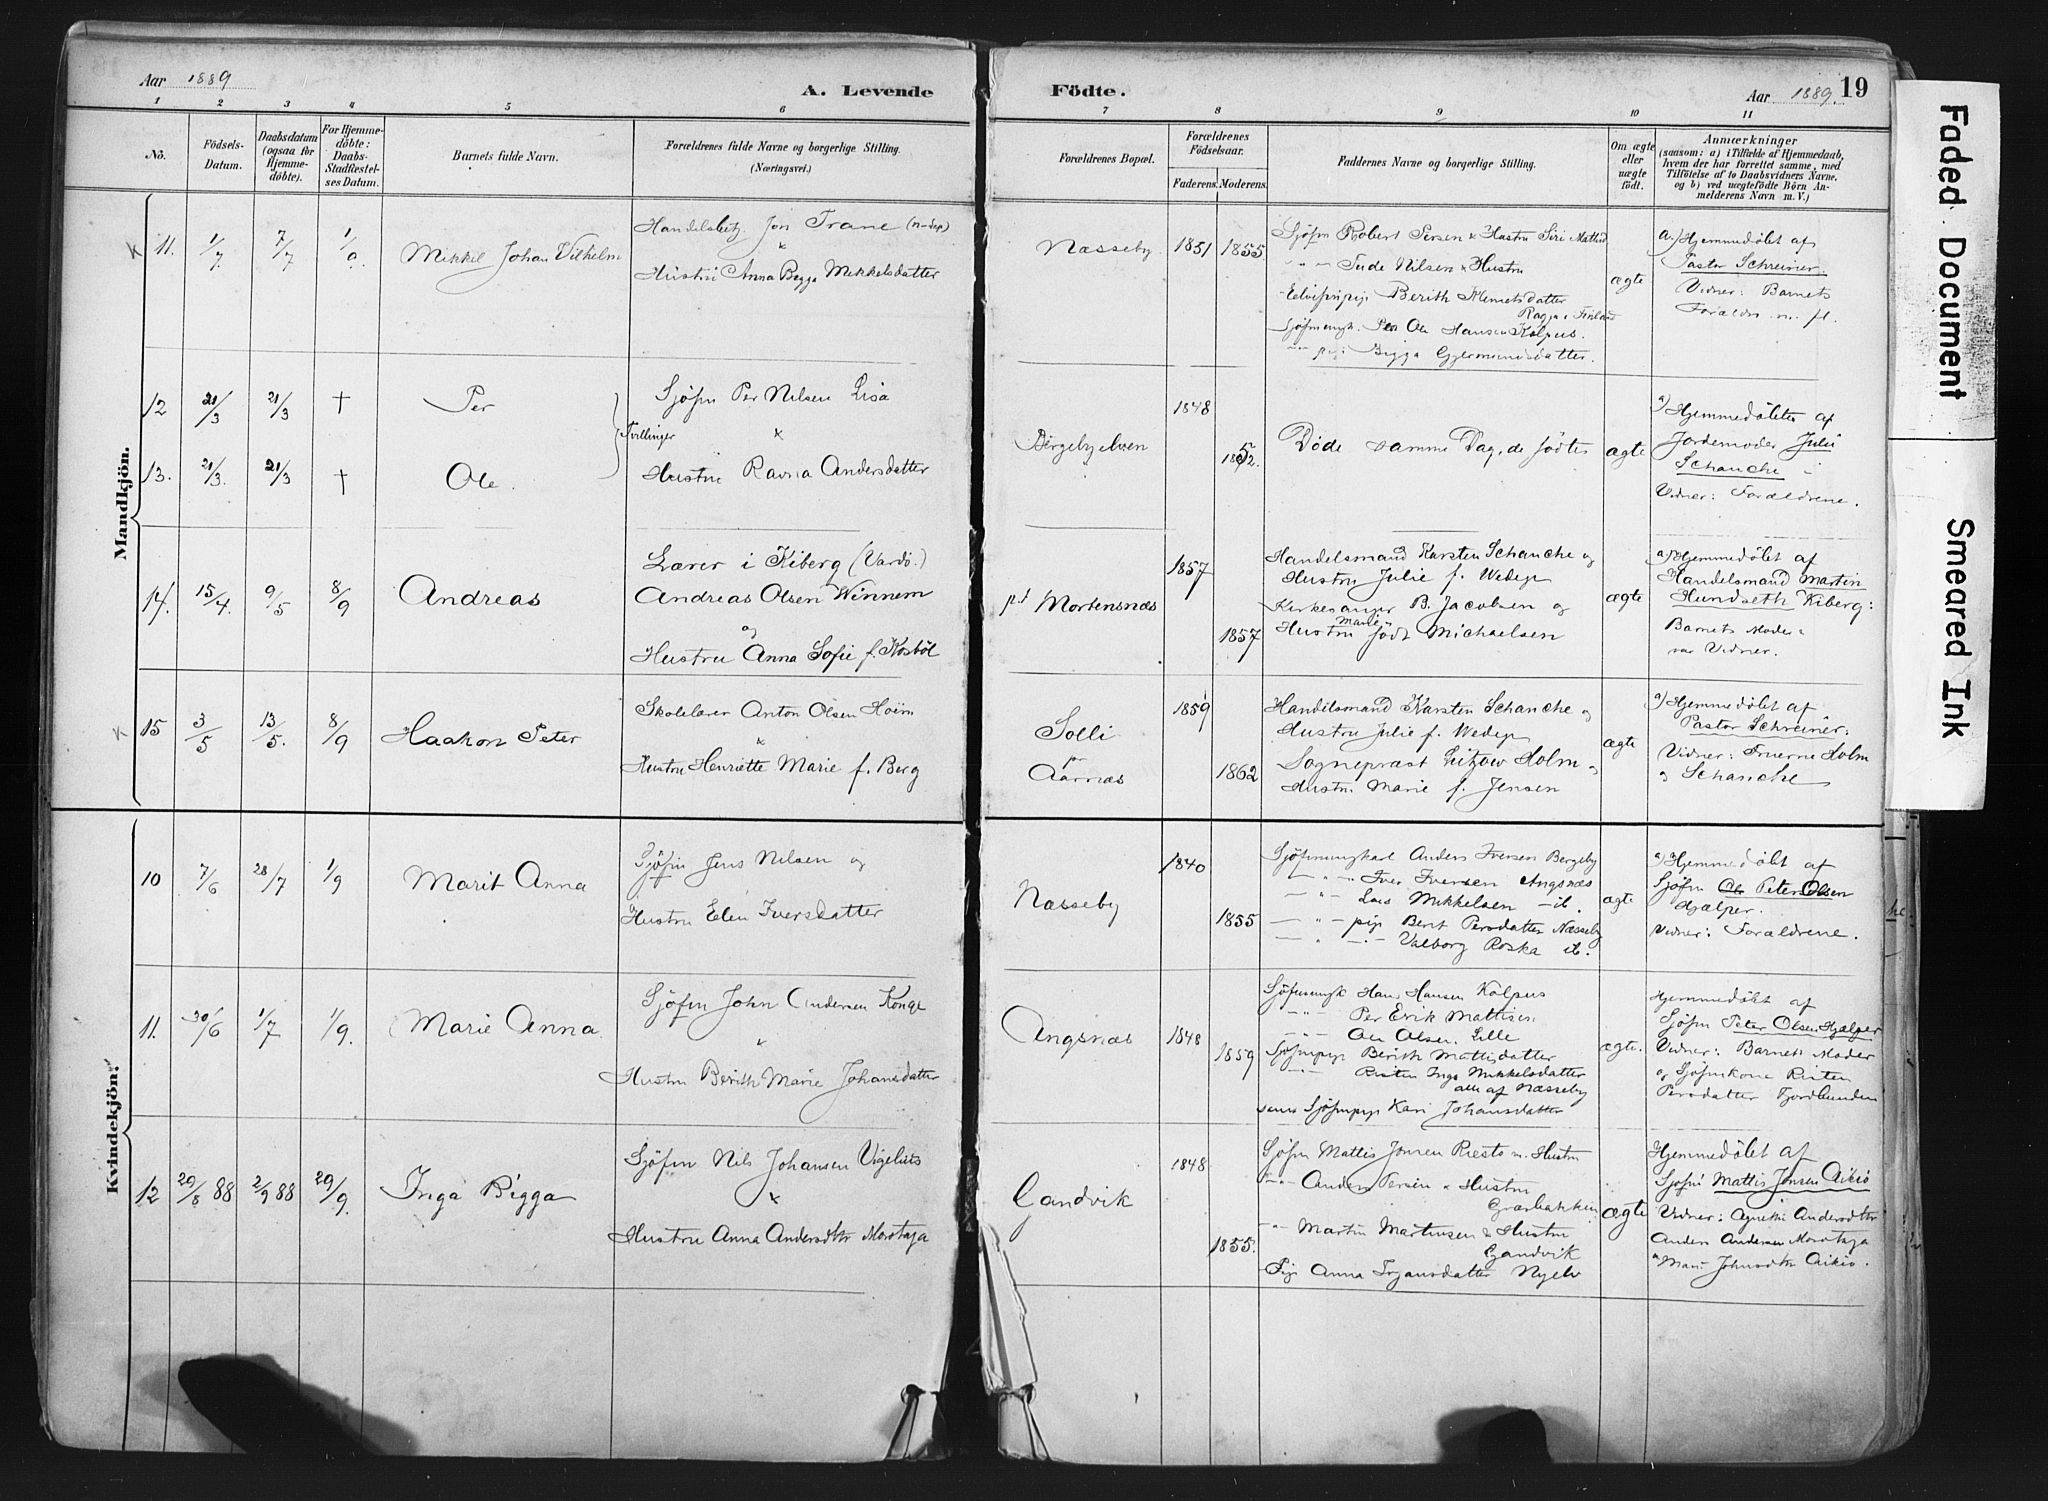 Aar 1889
A. Levende
Födte.
Aar 1889.
19
1 2 3 4 5 6 7 8 9 10 11
No.
Födsels-
Datum.
Daabsdatum
(ogsaa for
Hjemme-
döbte).
For Hjemme-
döbte:
Daabs-
Stadfæstel-
ses Datum.
Barnets fulde Navn.
Forældrenes fulde Navne og borgerlige Stilling.
(Næringsvei.)
Forældrenes Bopæl.
Forældrenes
Födselsaar.
Faderens. Moderens.
Faddernes Navne og borgerlige Stilling.
Om ægte
eller
uægte
födt.
Anmærkninger
(saasom: a) i Tilfælde af Hjemmedaab,
hvem der har forrettet samme, med
Tilföielse af to Daabsvidners Navne,
og b) ved uægtefödte Börn An-
melderens Navn m. V.)
Mandkjön.
11. 1/7. 7/7 1/9. Mikkel Johan Vilhelm
Jon Trane
x
Hustru Anna Bigga Mikkelsdatter
Næsseby 1851 1855
Sjöfin Robert Persen x Hustru Siri Mathisd
Nilsen x Hustru
Berith Klemetsdatter
Ole Hansen Kolpus.
Bigga
ægte
a.) Hjemmedöbt af
Pastor Schreiner.
Vidner: Barnets
Forældre m. fl.
12 21/3 21/3 † Per
13. 21/3. 21/3 † Ole.
Tvillinger
Sjöfin Per Nilsen Lisa
x
Hustru Ravna Andersdatter
Bergebyelven
1848
1852.
Döde samme Dag, de födtes
ægte
a) Hjemmedöbte af
Jordemoder Julie
Schanche
Vidner: Forældrene.
14. 15/4. 9/5 8/9 Andreas
Lærer i Kiberg (Vardö.)
Andreas Olsen Winnem
og
Hustru Anna Sofie f. Kosböl
p.t. Mortensnæs
1857
1857
Handelsmand Karsten Schanche og
Hustru Julie f. Wedege
Kirkesanger B. Jacobsen og
Hustru Marie födt Michaelsen
ægte
a) Hjemmedöbt af
Handelsmand Martin
Hundseth Kiberg:
Barnets Moder
var Vidner.
15 3/5 13/5. 8/9 Haakon Peter
Skolelærer Anton Olsen Hoim
x
Hustru Henriette Marie f. Berg
Solli
pr
Aarnæs
1859
1862
Handelsmand Karsten Schanche og
Hustru Julie f. Wedege
Sogneprest Lützow Holm og
Hustru Marie f. Jensen
ægte
a) Hjemmedöbt af
Pastor Schreiner:
Vidner: Fruerne Holm
og Schanche
Kvindekjön:
10 7/6 28/7 1/9 Marit Anna
Sjöfin Jens Nilsen og
Hustru Elen Iversdatter
Næsseby
1840
1855
Sjöfinungkarl Anders Iversen Bergeby
— " — Iver Iversen Angsnæs
— " — Lars Mikkelsen — ib.
— " — pige Berit Persdatter Næsseby
— " — Valborg Roska ib.
ægte
a) Hjemmedöbt af
Sjöfin Peter Olsen
Hjælper.
Vidner: Forældrene.
11. 30/6 1/7 1/9. Marie Anna
Sjöfin John Andersen Konge
x
Hustru Berith Marie Johansdatter
Angsnæs
1848
1859
Sjöfinungk Hans Hansen Kolpus
— " — Per Erik Mattisen
— " — Ole Olsen Lille
Sjöfinpige Berith Mattisdatter
— " — Risten Inga Mikkelsdatter
alle af Næsseby
samt Sjöfinpige Kari Johansdatter
ægte.
Hjemmedöbt af
Sjöfin Peter Olsen Hjælper
Vidner: Barnets Moder
og Sjöfinkone Risten
Persdatter Fjordbunden
12 29/8 88 2/9 88 29/9. Inga Bigga
Sjöfin Nils Johansen Vigelius
x
Hustru Anna Andersdtr Morotaja
Gandvik
1848
1855.
Sjöfin Mattis Jonsen Riesto m. Hustru
— " — Anders Persen x Hustru
Græsbakken
" — Martin Martinsen x Hustru
Gandvik
Pige Anna Nyelv
ægte
Hjemmedöbt af
Sjöfin Mattis Jonsen Aikio
Vidner: Agnethe Andersdtr
Anders Andersen Morotaja
Aikio.
Faded Document
Smeared Ink